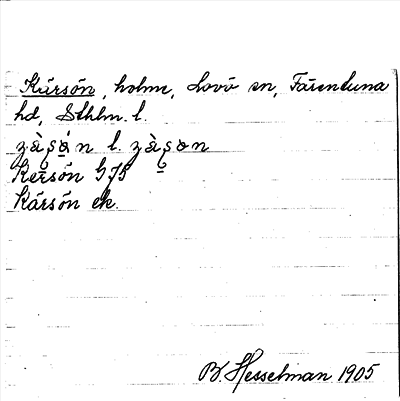 Kärsön, holme, Lovö sn, Färentuna
hd, Sthlm. l.
l.
Kersön G75
Kärsön ek.
B. Hesselman 1905